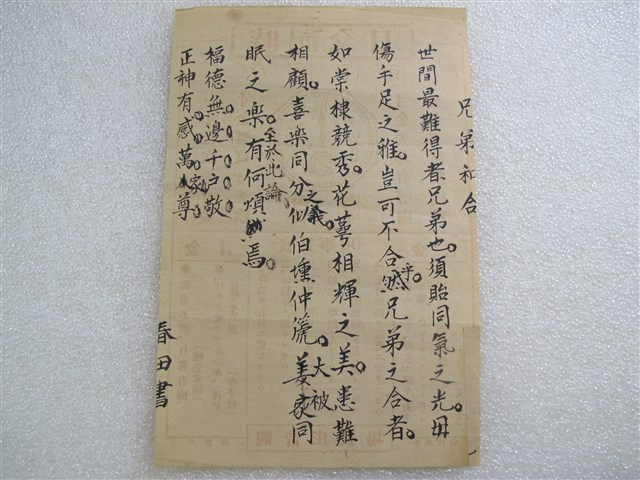 兄弟和合
世間最難得者兄弟也。須貽同氣之光。毋
傷手足之雅。豈可不合乎。然兄弟之合者。
如棠棣競秀。花萼相輝之美。患難
相顧。喜樂同分之義。似伯壎仲篪。姜家大被同
眠之樂。至於此論。有何煩焉。
福德無邊千戶敬
正神有感萬家尊
春田書